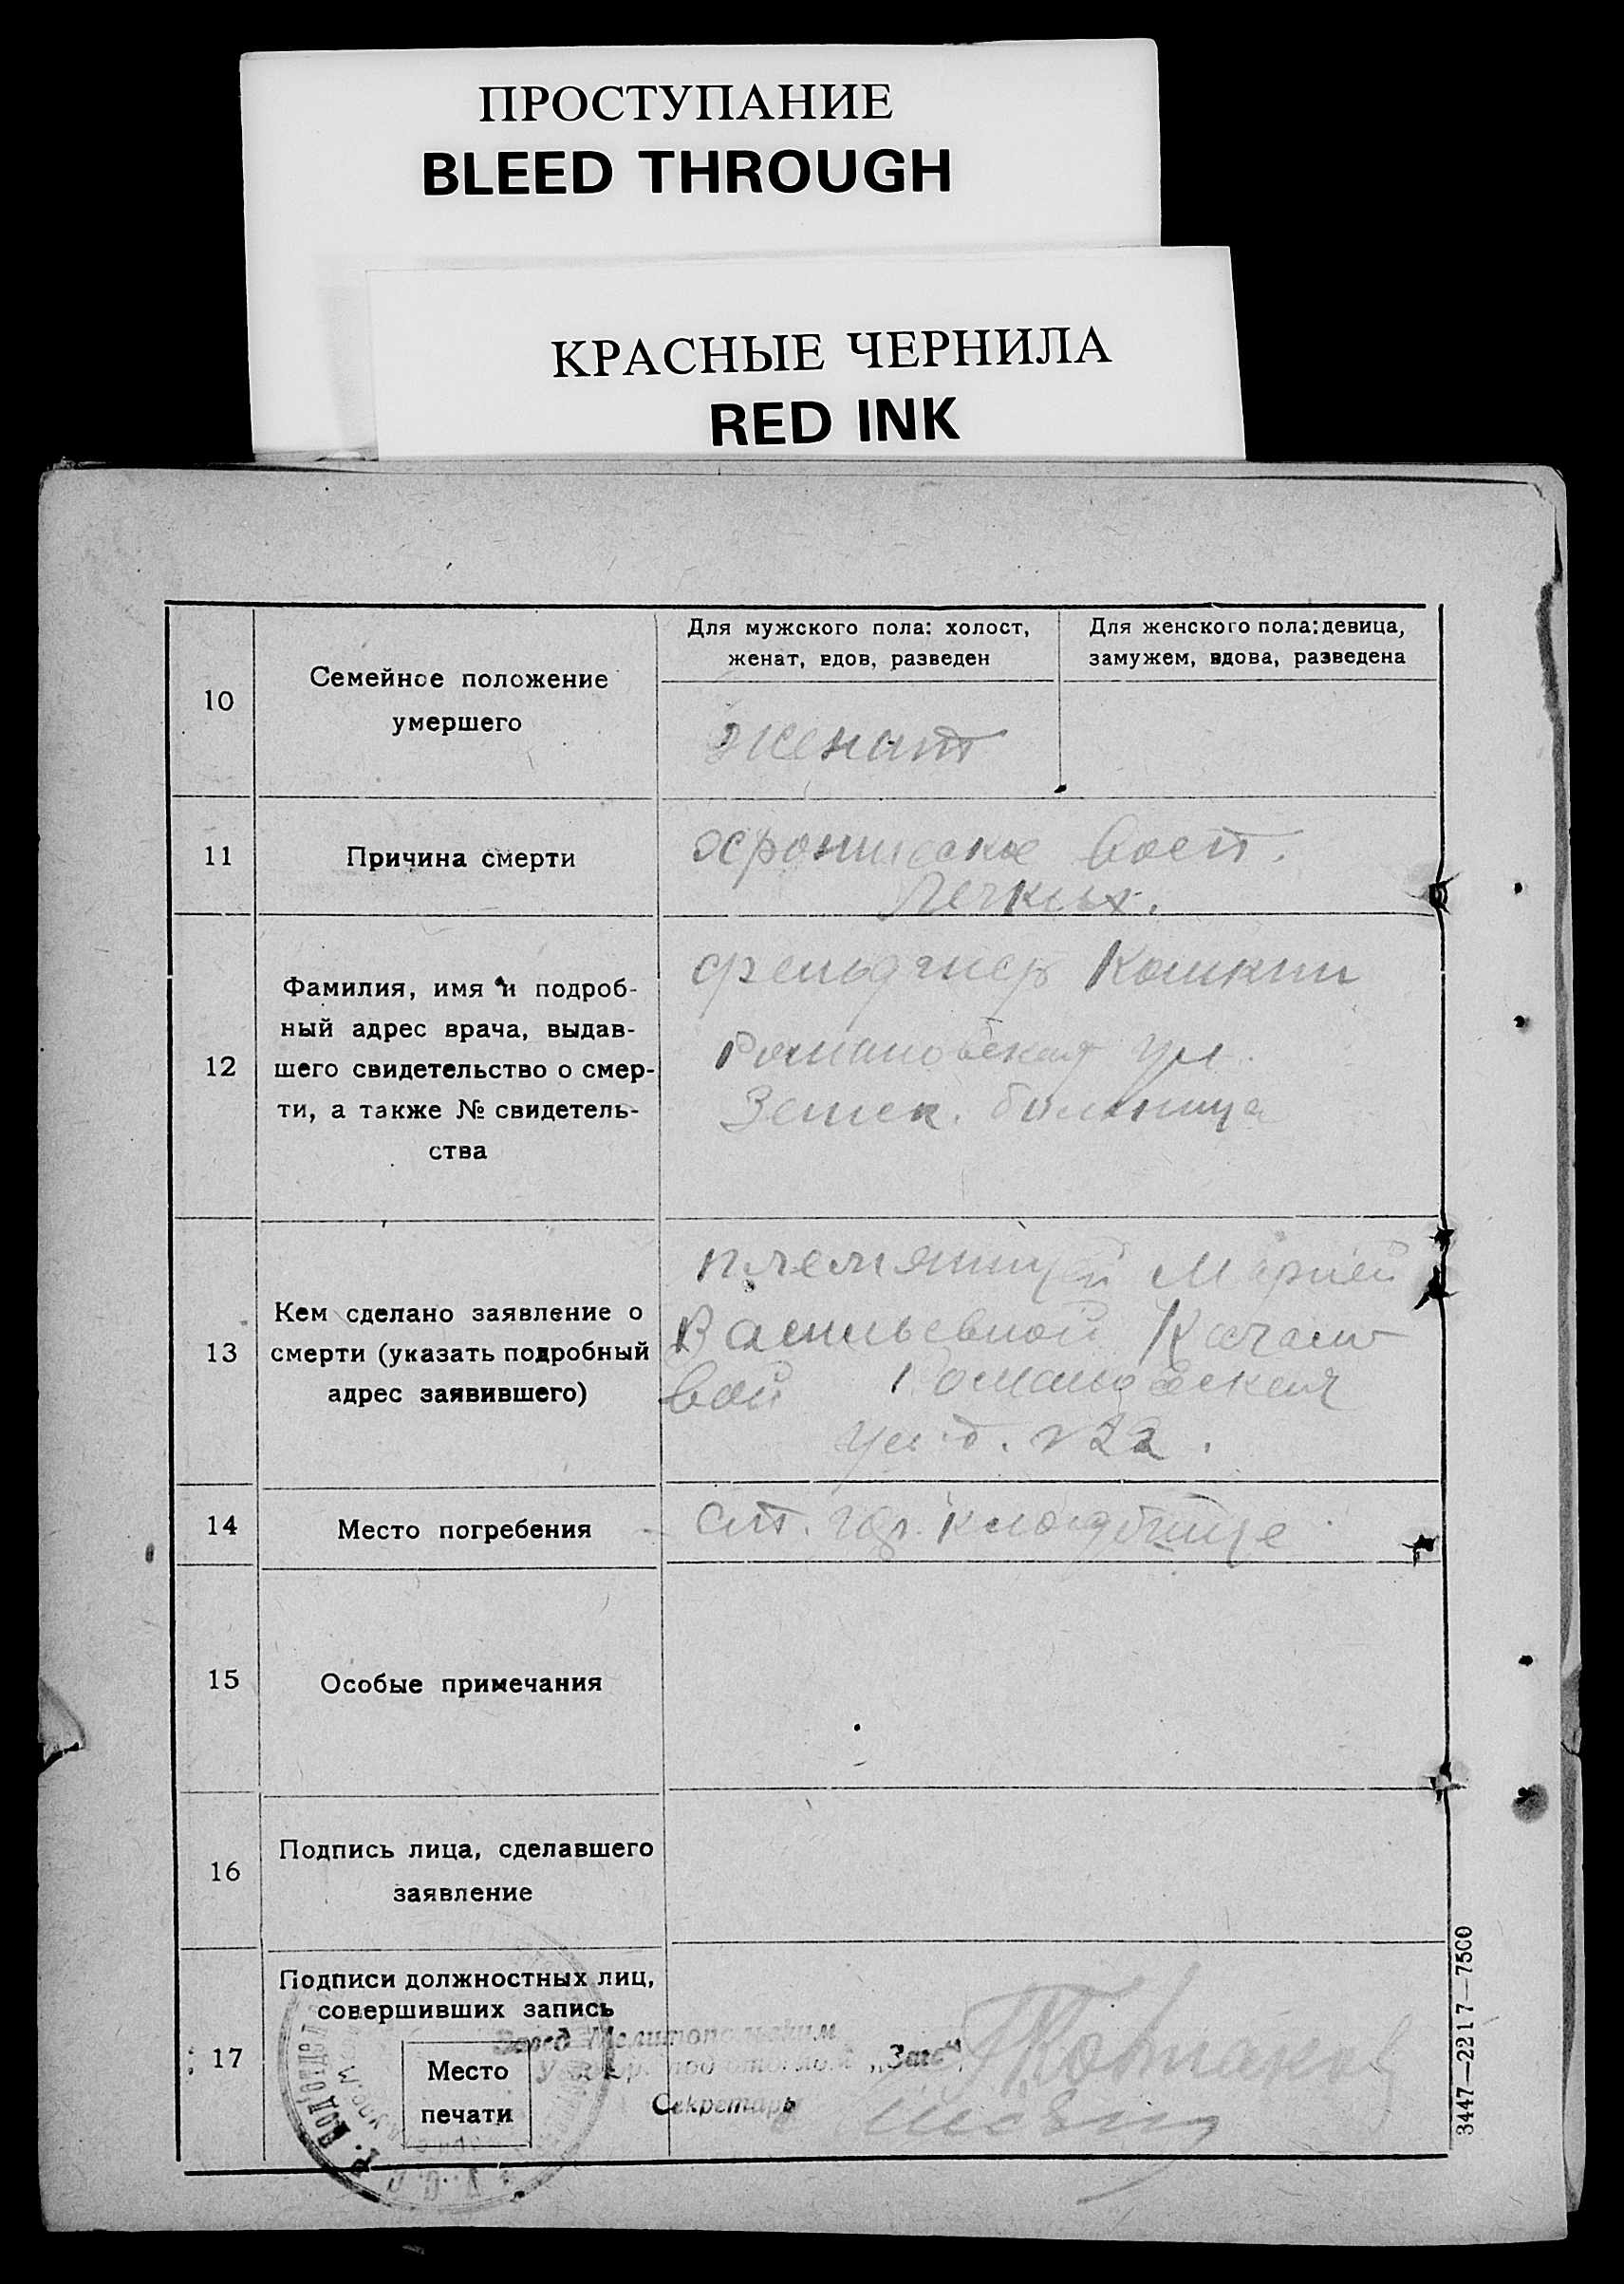 ПРОСТУПАНИЕ
BLEED THROUGH
КРАСНЫЕ ЧЕРНИЛА
RED INK
10
Семейное положение
умершего
Для мужского пола: холост,
женат, вдов, разведен
Для женского пола: девица,
замужем, вдова, разведена
женат
11
Причина смерти
хроническое восп.
легких.
12
Фамилия, имя и подроб-
ный адрес врача, выдав-
шего свидетельство о смер-
ти, а также № свидетель-
ства
фельдшер
Романовская ул.
Земск. больница
13
Кем сделано заявление о
смерти (указать подробный
адрес заявившего)
племянницей Марией
Васильевной
вой Романовская
ул. д. № 22.
14
Место погребения
ст. гор. кладбище
15
Особые примечания
16
Подпись лица, сделавшего
заявление
17
Подписи должностных лиц,
совершивших запись
Место
печати
Завед Мелитопольским
подотделом „Загс"
Секретарь
3447—2217—7500